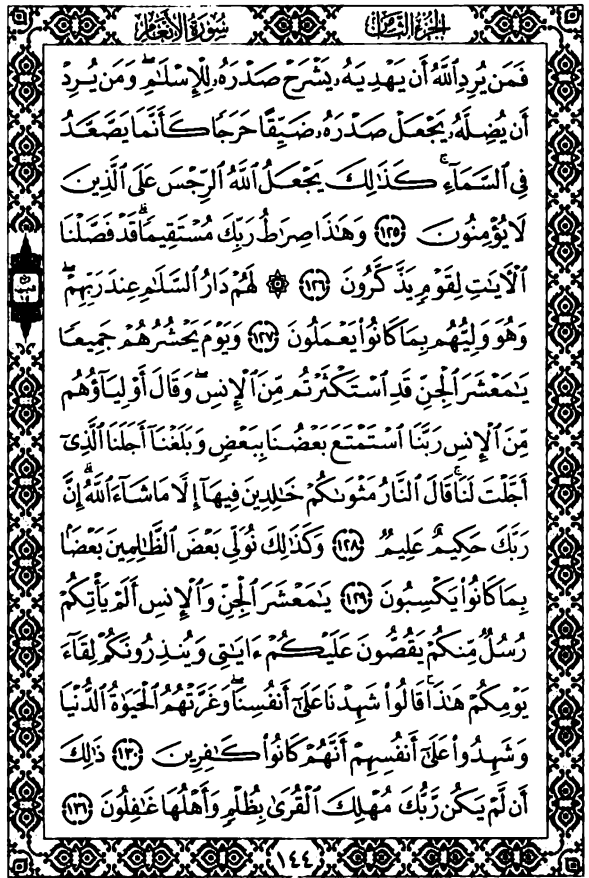 الجزء الثامن
سورة الأنعام
فَمَن يُرِدِ ٱللَّهُ أَن يَهْدِيَهُۥ يَشْرَحْ صَدْرَهُۥ لِلْإِسْلَٰمِ ۖ وَمَن يُرِدْ
أَن يُضِلَّهُۥ يَجْعَلْ صَدْرَهُۥ ضَيِّقًا حَرَجًا كَأَنَّمَا يَصَّعَّدُ
فِى ٱلسَّمَآءِ ۚ كَذَٰلِكَ يَجْعَلُ ٱللَّهُ ٱلرِّجْسَ عَلَى ٱلَّذِينَ
لَا يُؤْمِنُونَ ١٢٥ وَهَٰذَا صِرَٰطُ رَبِّكَ مُسْتَقِيمًا ۗ قَدْ فَصَّلْنَا
ٱلْآيَٰتِ لِقَوْمٍ يَذَّكَّرُونَ ١٢٦ ۞ لَهُمْ دَارُ ٱلسَّلَٰمِ عِندَ رَبِّهِمْ ۖ
وَهُوَ وَلِيُّهُم بِمَا كَانُوا۟ يَعْمَلُونَ ١٢٧ وَيَوْمَ يَحْشُرُهُمْ جَمِيعًا
يَٰمَعْشَرَ ٱلْجِنِّ قَدِ ٱسْتَكْثَرْتُم مِّنَ ٱلْإِنسِ ۖ وَقَالَ أَوْلِيَآؤُهُم
مِّنَ ٱلْإِنسِ رَبَّنَا ٱسْتَمْتَعَ بَعْضُنَا بِبَعْضٍ وَبَلَغْنَآ أَجَلَنَا ٱلَّذِىٓ
أَجَّلْتَ لَنَا ۚ قَالَ ٱلنَّارُ مَثْوَىٰكُمْ خَٰلِدِينَ فِيهَآ إِلَّا مَا شَآءَ ٱللَّهُ ۗ إِنَّ
رَبَّكَ حَكِيمٌ عَلِيمٌ ١٢٨ وَكَذَٰلِكَ نُوَلِّى بَعْضَ ٱلظَّٰلِمِينَ بَعْضًۢا
بِمَا كَانُوا۟ يَكْسِبُونَ ١٢٩ يَٰمَعْشَرَ ٱلْجِنِّ وَٱلْإِنسِ أَلَمْ يَأْتِكُمْ
رُسُلٌ مِّنكُمْ يَقُصُّونَ عَلَيْكُمْ ءَايَٰتِى وَيُنذِرُونَكُمْ لِقَآءَ
يَوْمِكُمْ هَٰذَا ۚ قَالُوا۟ شَهِدْنَا عَلَىٰٓ أَنفُسِنَا ۖ وَغَرَّتْهُمُ ٱلْحَيَوٰةُ ٱلدُّنْيَا
وَشَهِدُوا۟ عَلَىٰٓ أَنفُسِهِمْ أَنَّهُمْ كَانُوا۟ كَٰفِرِينَ ١٣٠ ذَٰلِكَ
أَن لَّمْ يَكُن رَّبُّكَ مُهْلِكَ ٱلْقُرَىٰ بِظُلْمٍ وَأَهْلُهَا غَٰفِلُونَ ١٣١
١٤٤